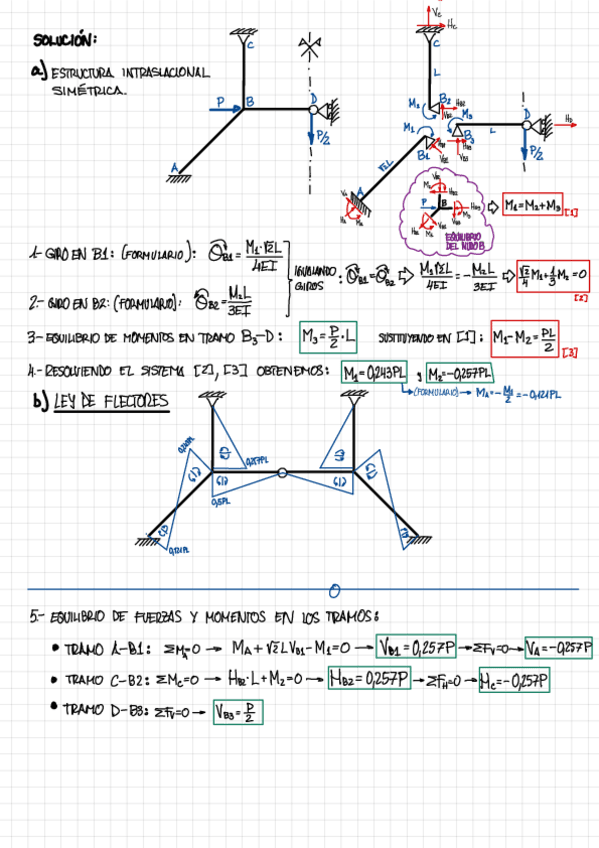 SOLUCIÓN:
a) ESTRUCTURA INTRASLACIONAL
SIMÉTRICA.
C
P
B
D
P/2
A
V_C
H_C
C
L
M_2
B_2
H_B2
V_B2
M_3
B_3
L
D
H_D
P/2
M_1
B_1
√2L
A
P
B
EQUILIBRIO
DEL NUDO B
M_1=M_2+M_3 [1]
1- GIRO EN B1: (FORMULARIO): θ_B1 = M_1·√2L/4EI
2.- GIRO EN B2: (FORMULARIO): θ_B2 = M_2L/3EI
IGUALANDO
GIROS : θ_B1=θ_B2 ⇒ M_1√2L/4EI = -M_2L/3EI ⇒ √2/4 M_1+1/3 M_2=0
[2]
3-EQUILIBRIO DE MOMENTOS EN TRAMO B_3-D: M_3=P/2·L SUSTITUYENDO EN [1]: M_1-M_2=PL/2
[3]
4.- RESOLVIENDO EL SISTEMA [2], [3] OBTENEMOS: M_1=0,243PL y M_2=-0,257PL
(FORMULARIO)→ M_A=-M_1/2=-0,121PL
b) LEY DE FLECTORES
0,257PL
0,5PL
0,121PL
5.- EQUILIBRIO DE FUERZAS Y MOMENTOS EN LOS TRAMOS:
• TRAMO A-B1: ΣM_A=0 → M_A+√2LV_B1-M_1=0 → V_B1=0,257P → ΣF_V=0 → V_A=-0,257P
• TRAMO C-B2: ΣM_C=0 → H_B2·L+M_2=0 → H_B2=0,257P → ΣF_H=0 → H_C=-0,257P
• TRAMO D-B3: ΣF_V=0 → V_B3=P/2